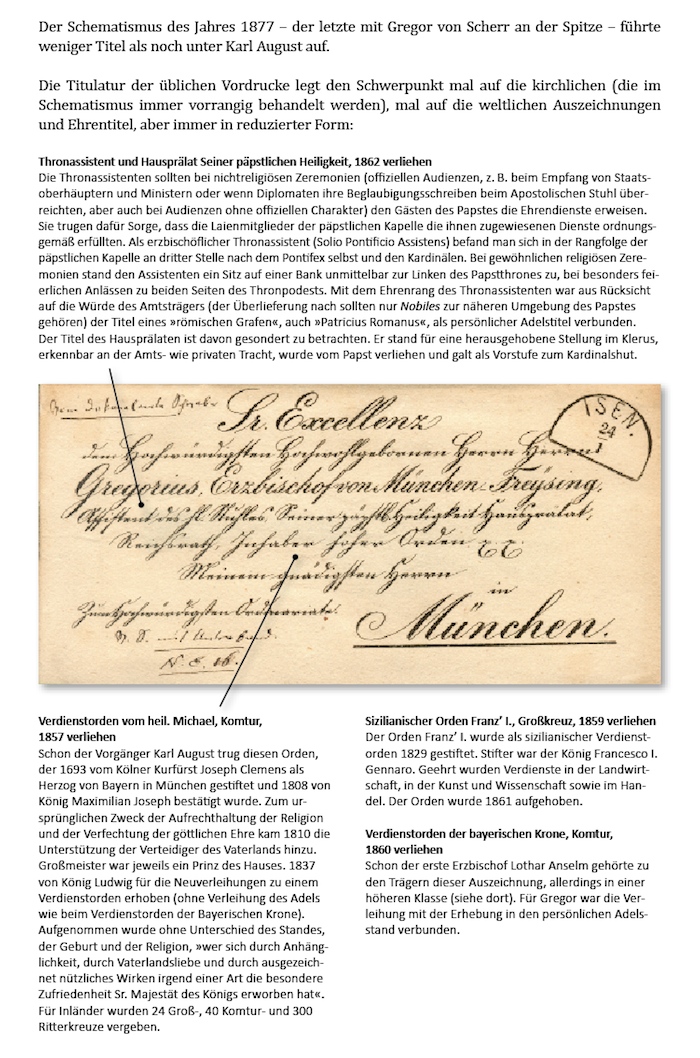 Der Schematismus des Jahres 1877 – der letzte mit Gregor von Scherr an der Spitze – führte
weniger Titel als noch unter Karl August auf.
Die Titulatur der üblichen Vordrucke legt den Schwerpunkt mal auf die kirchlichen (die im
Schematismus immer vorrangig behandelt werden), mal auf die weltlichen Auszeichnungen
und Ehrentitel, aber immer in reduzierter Form:
Thronassistent und Hausprälat Seiner päpstlichen Heiligkeit, 1862 verliehen
Die Thronassistenten sollten bei nichtreligiösen Zeremonien (offiziellen Audienzen, z. B. beim Empfang von Staats-
oberhäuptern und Ministern oder wenn Diplomaten ihre Beglaubigungsschreiben beim Apostolischen Stuhl über-
reichten, aber auch bei Audienzen ohne offiziellen Charakter) den Gästen des Papstes die Ehrendienste erweisen.
Sie trugen dafür Sorge, dass die Laienmitglieder der päpstlichen Kapelle die ihnen zugewiesenen Dienste ordnungs-
gemäß erfüllten. Als erzbischöflicher Thronassistent (Solio Pontificio Assistens) befand man sich in der Rangfolge der
päpstlichen Kapelle an dritter Stelle nach dem Pontifex selbst und den Kardinälen. Bei gewöhnlichen religiösen Zere-
monien stand den Assistenten ein Sitz auf einer Bank unmittelbar zur Linken des Papstthrones zu, bei besonders fei-
erlichen Anlässen zu beiden Seiten des Thronpodests. Mit dem Ehrenrang des Thronassistenten war aus Rücksicht
auf die Würde des Amtsträgers (der Überlieferung nach sollten nur Nobiles zur näheren Umgebung des Papstes
gehören) der Titel eines »römischen Grafen«, auch »Patricius Romanus«, als persönlicher Adelstitel verbunden.
Der Titel des Hausprälaten ist davon gesondert zu betrachten. Er stand für eine herausgehobene Stellung im Klerus,
erkennbar an der Amts- wie privaten Tracht, wurde vom Papst verliehen und galt als Vorstufe zum Kardinalshut.
Sr. Excellenz
dem Hochwürdigsten Hochwohlgebornen Herrn Herrn
Gregorius, Erzbischof von München-Freysing,
Assistent des hl. Stuhles Seiner päpstl. Heiligkeit Hausprälat,
Reichsrath, Inhaber hoher Orden
Meinem gnädigsten Herrn
in
Zum Hochwürdigsten Ordinariate.
München.
ISEN.
24
1
Verdienstorden vom heil. Michael, Komtur,
1857 verliehen
Schon der Vorgänger Karl August trug diesen Orden,
der 1693 vom Kölner Kurfürst Joseph Clemens als
Herzog von Bayern in München gestiftet und 1808 von
König Maximilian Joseph bestätigt wurde. Zum ur-
sprünglichen Zweck der Aufrechthaltung der Religion
und der Verfechtung der göttlichen Ehre kam 1810 die
Unterstützung der Verteidiger des Vaterlands hinzu.
Großmeister war jeweils ein Prinz des Hauses. 1837
von König Ludwig für die Neuverleihungen zu einem
Verdienstorden erhoben (ohne Verleihung des Adels
wie beim Verdienstorden der Bayerischen Krone).
Aufgenommen wurde ohne Unterschied des Standes,
der Geburt und der Religion, »wer sich durch Anhäng-
lichkeit, durch Vaterlandsliebe und durch ausgezeich-
net nützliches Wirken irgend einer Art die besondere
Zufriedenheit Sr. Majestät des Königs erworben hat«.
Für Inländer wurden 24 Groß-, 40 Komtur- und 300
Ritterkreuze vergeben.
Sizilianischer Orden Franz' I., Großkreuz, 1859 verliehen
Der Orden Franz' I. wurde als sizilianischer Verdienst-
orden 1829 gestiftet. Stifter war der König Francesco I.
Gennaro. Geehrt wurden Verdienste in der Landwirt-
schaft, in der Kunst und Wissenschaft sowie im Han-
del. Der Orden wurde 1861 aufgehoben.
Verdienstorden der bayerischen Krone, Komtur,
1860 verliehen
Schon der erste Erzbischof Lothar Anselm gehörte zu
den Trägern dieser Auszeichnung, allerdings in einer
höheren Klasse (siehe dort). Für Gregor war die Ver-
leihung mit der Erhebung in den persönlichen Adels-
stand verbunden.